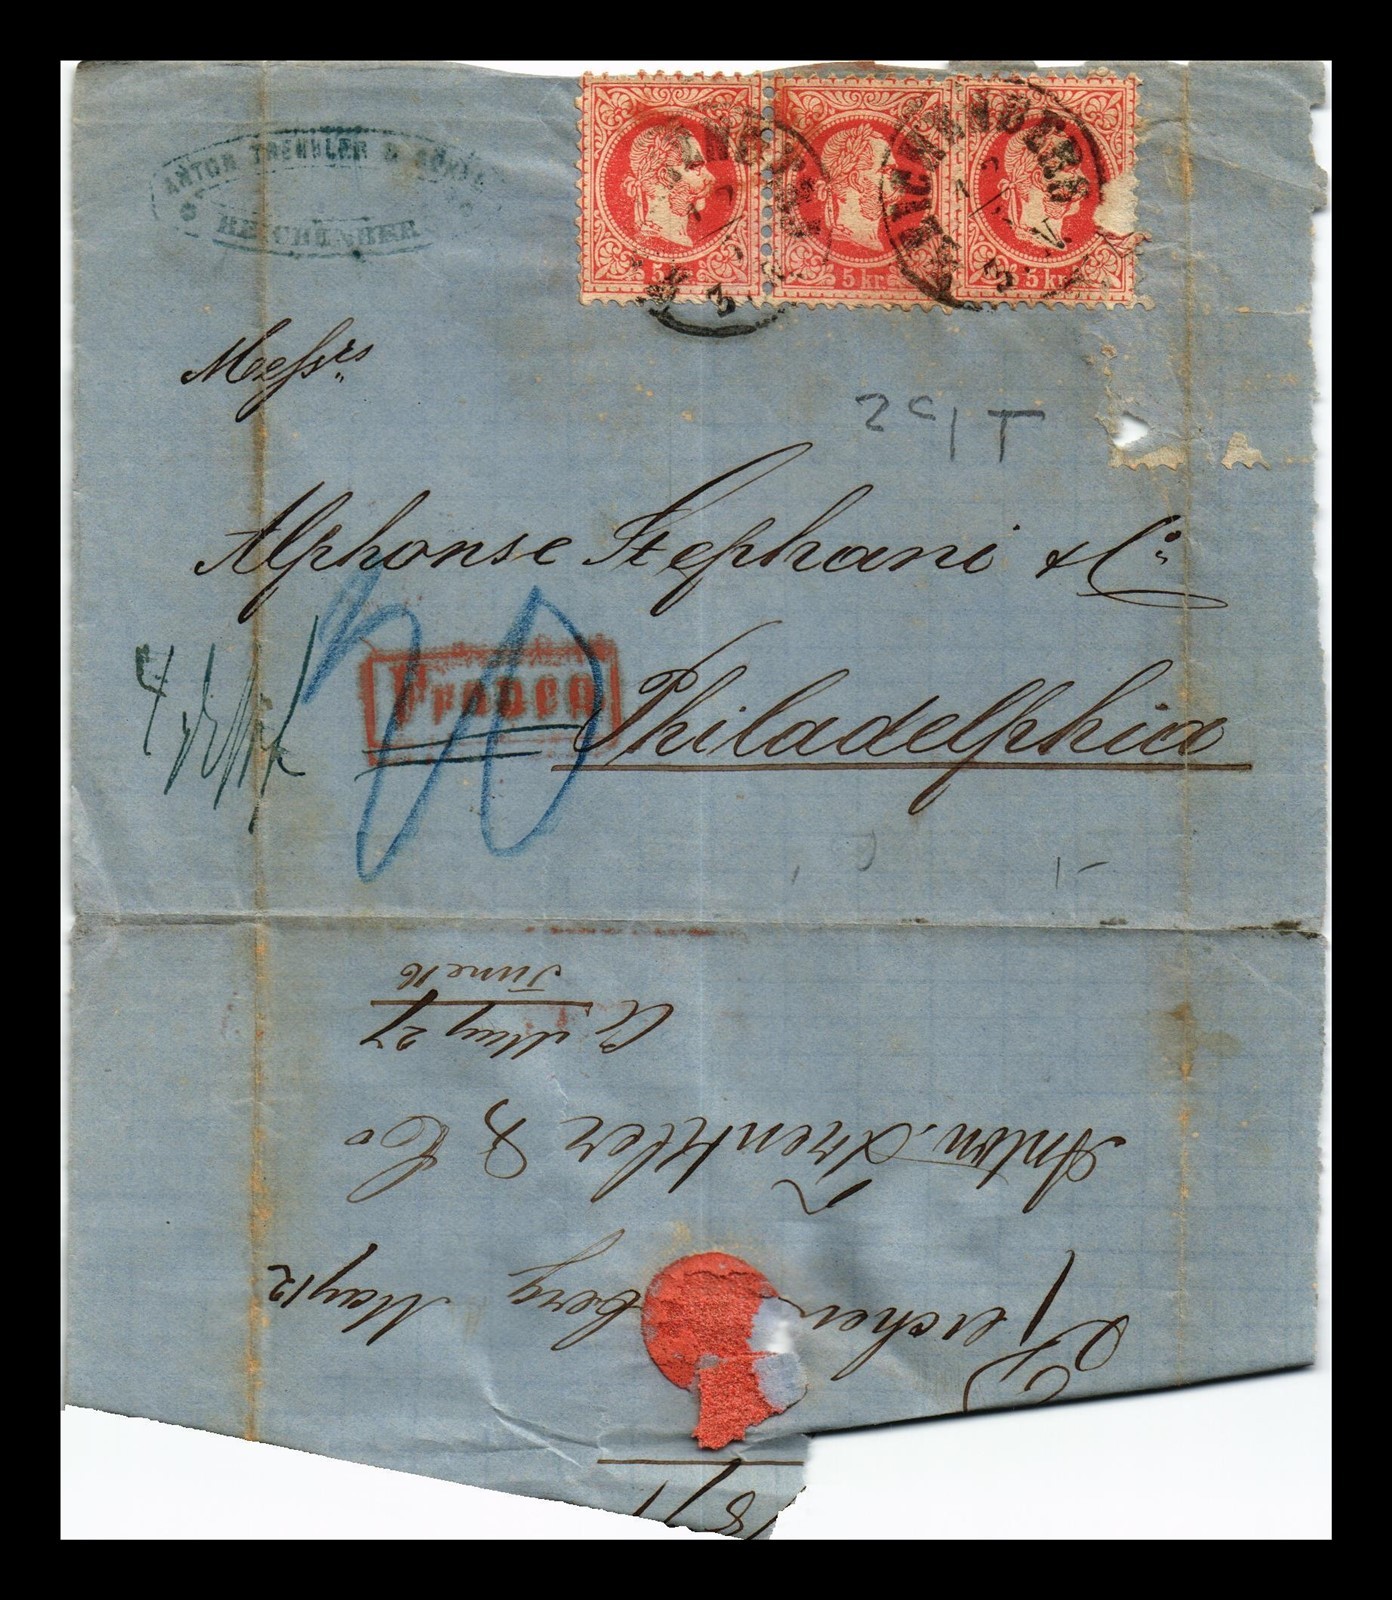 ANTON TRENKLER & SÖHNE
REICHENBERG
5 kr
5 kr
5 kr
REICHENBERG
12
V
REICHENBERG
12
V
Messrs
Alphonse Stephani & Co
Philadelphia
Franco
June 16
May 27
Anton Trenkler & Co
Reichenberg May 12
1871